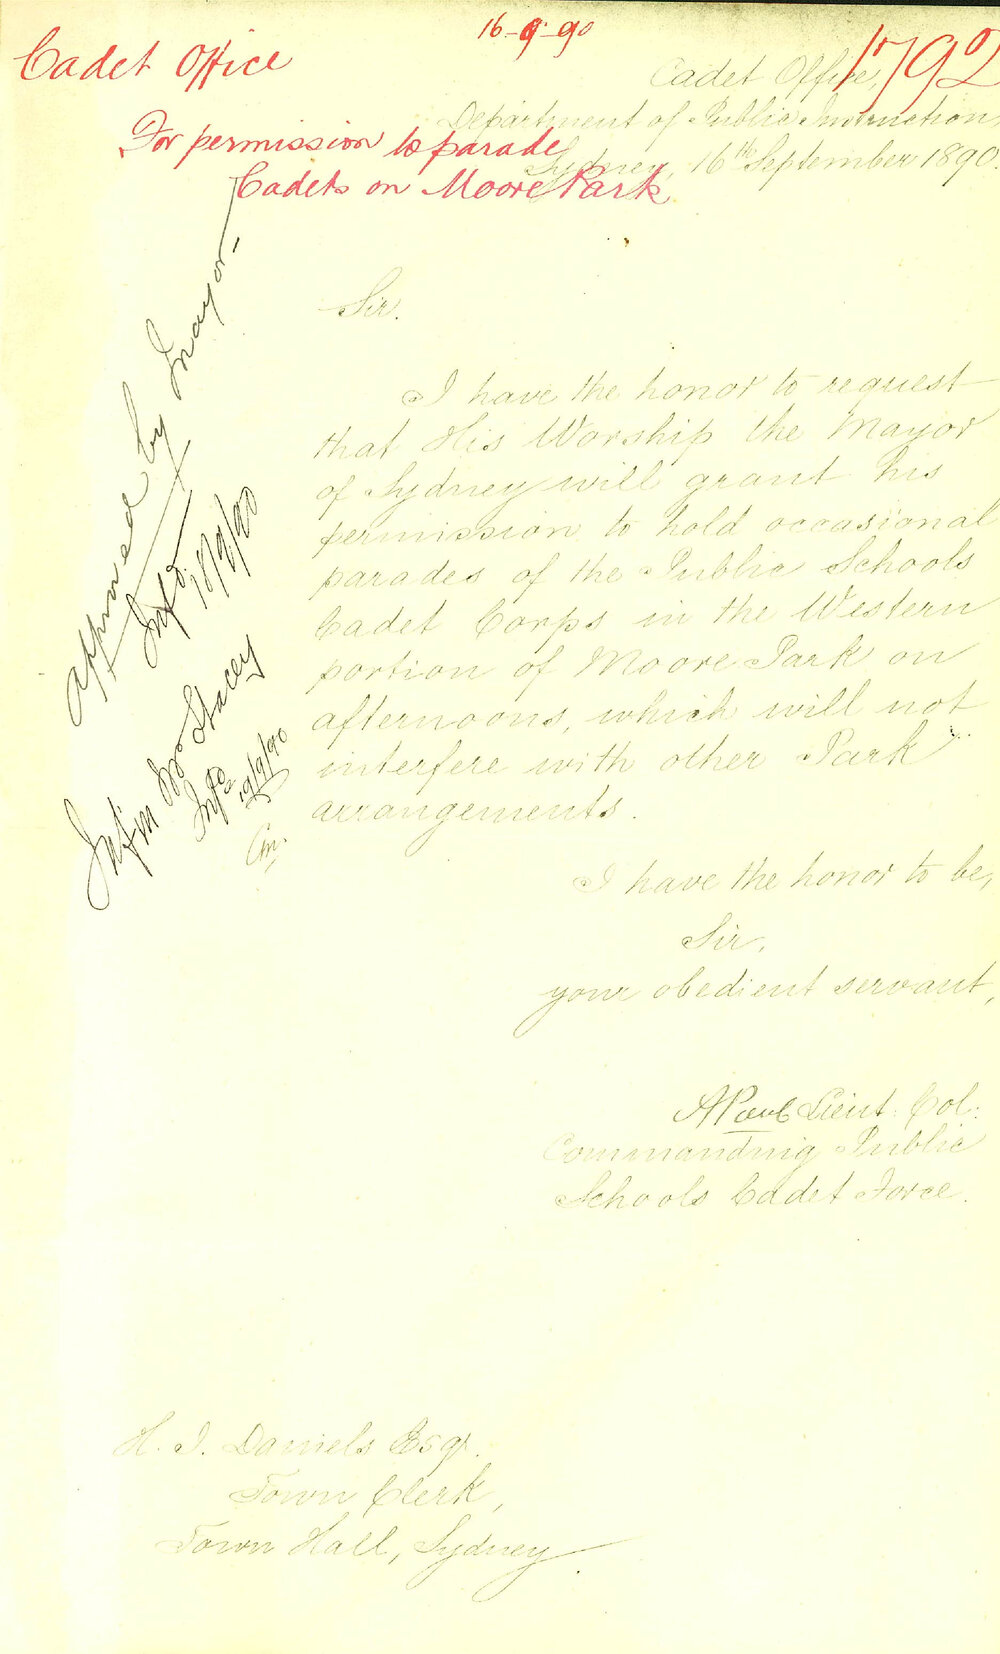 16-9-90
Cadet Office
1792
For permission to parade
Cadets on Moore Park
Cadet Office,
Department of Public Instruction,
Sydney, 16th September 1890.
Sir.
I have the honor to request
that His Worship the Mayor
of Sydney will grant his
permission to hold occasional
parades of the Public Schools
Cadet Corps in the Western
portion of Moore Park on
afternoons, which will not
interfere with other Park
arrangements.
I have the honor to be,
Sir,
your obedient servant,
A Paul Lieut. Col:
Commanding Public
Schools Cadet Force.
H. J. Daniels Esqr.
Town Clerk,
Town Hall, Sydney.
approved by Mayor-
Infd. 18/9/90
Inf'm Mr Stacey
Infd 19/9/90